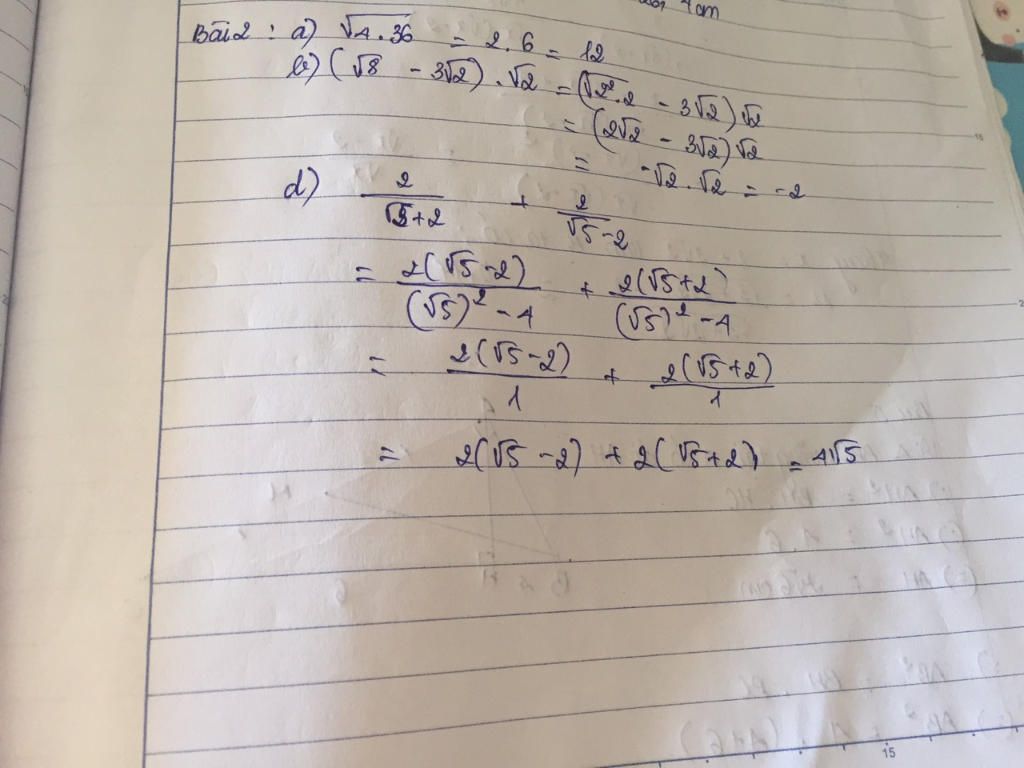 4cm
Bài 2 : a) √4.36 = 2.6 = 12
b) (√8 - 3√2) . √2 = (√2².2 - 3√2)√2
= (2√2 - 3√2)√2
= -√2.√2 = -2
d) 2/(√5+2) + 2/(√5-2)
= 2(√5-2)/((√5)²-4) + 2(√5+2)/((√5)²-4)
= 2(√5-2)/1 + 2(√5+2)/1
= 2(√5-2) + 2(√5+2) = 4√5
15